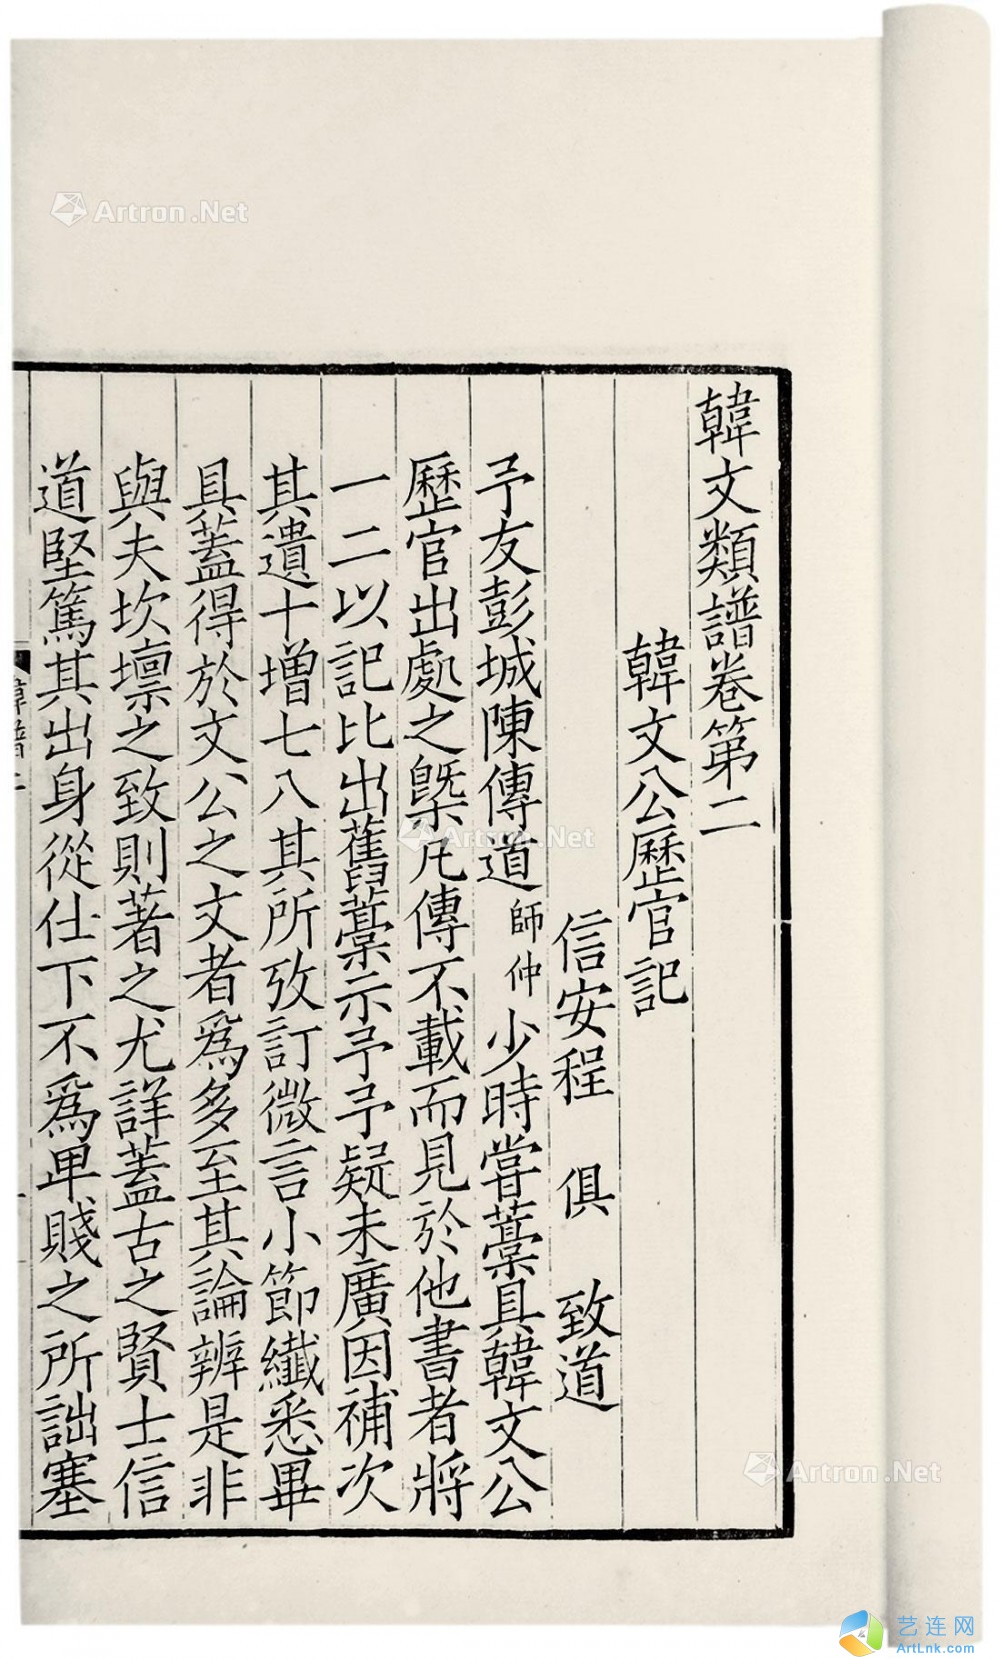 韓文類譜卷第二
韓文公歷官記
信安程 俱 致道
予友彭城陳傳道師仲少時嘗藁具韓文公
歷官出處之槩凡傳不載而見於他書者將
一二以記比出舊藁示予予疑未廣因補次
其遺十增七八其所攷訂微言小節纖悉畢
具蓋得於文公之文者爲多至其論辨是非
與夫坎壈之致則著之尤詳蓋古之賢士信
道堅篤其出身從仕下不爲卑賤之所詘塞
韓譜二
Artron.Net
Artron.Net
Artron.Net
艺连网
ArtLnk.com